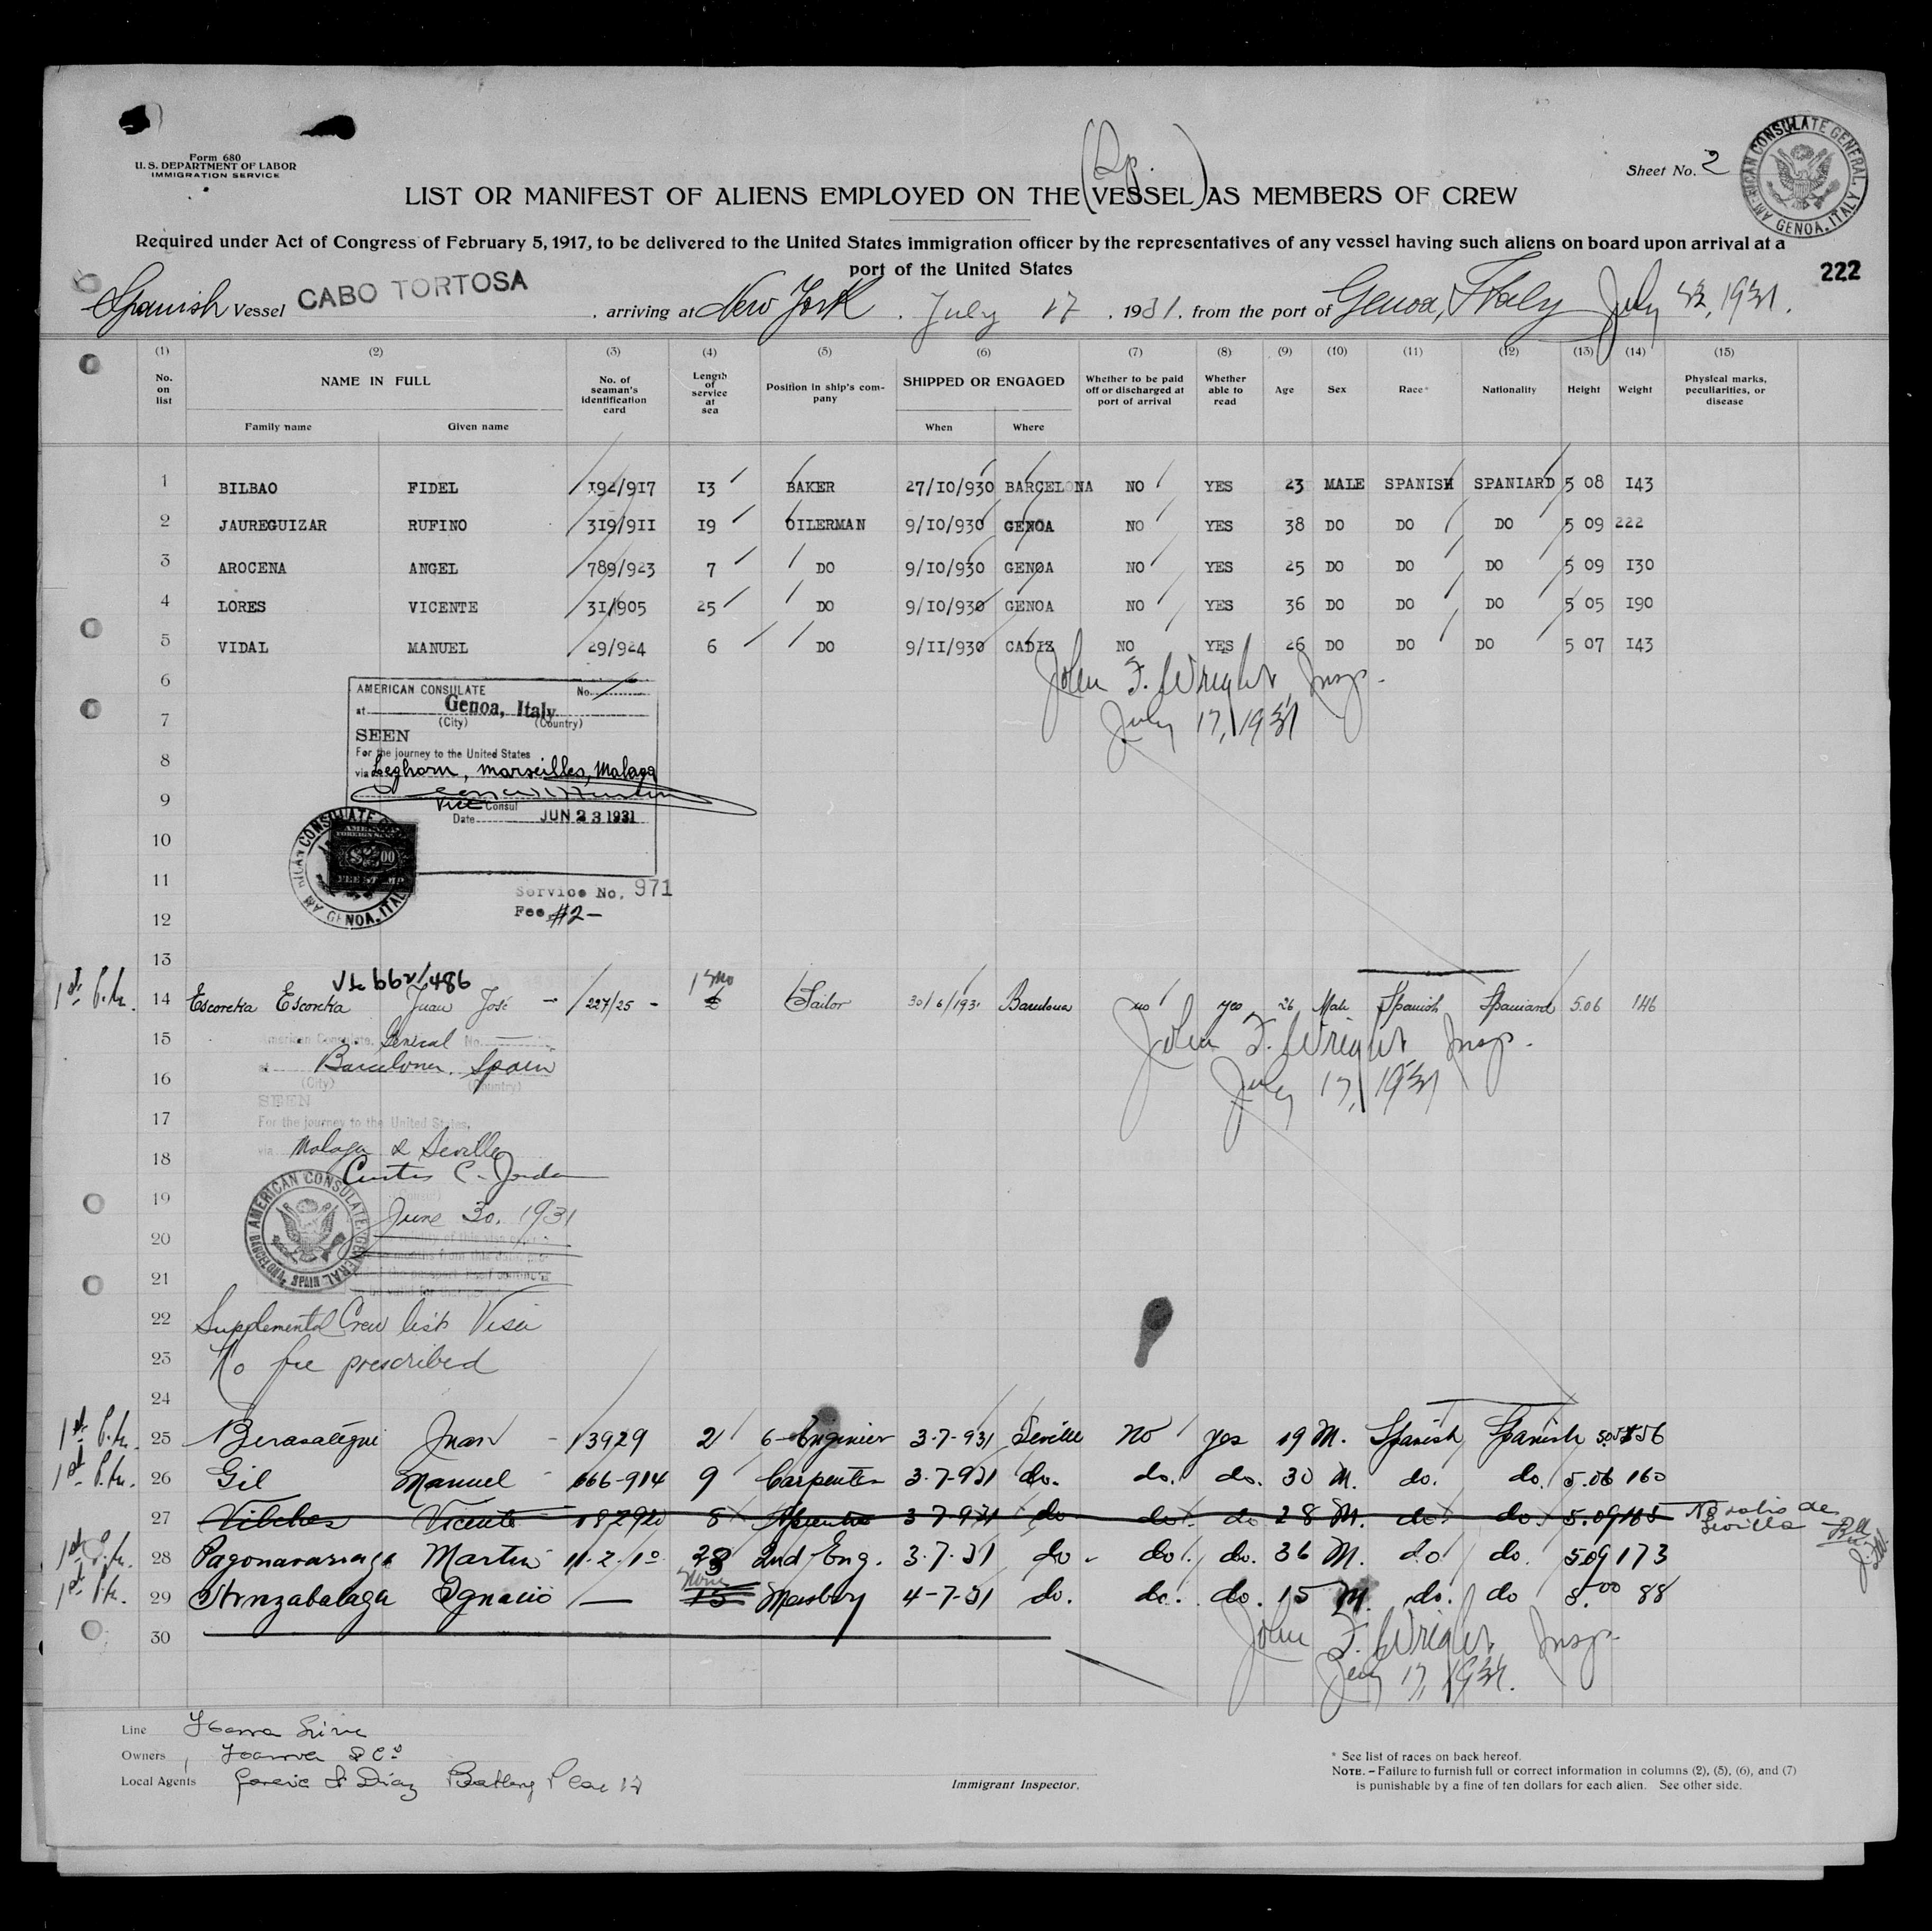 Form 680
U. S. DEPARTMENT OF LABOR
IMMIGRATION SERVICE
Sheet No. 2
AMERICAN CONSULATE GENERAL, GENOA, ITALY
LIST OR MANIFEST OF ALIENS EMPLOYED ON THE (VESSEL) AS MEMBERS OF CREW
Required under Act of Congress of February 5, 1917, to be delivered to the United States immigration officer by the representatives of any vessel having such aliens on board upon arrival at a
port of the United States
222
Spanish Vessel CABO TORTOSA, arriving at New York. July 17, 1931, from the port of Genoa, Italy July 1931.
(1) (2) (3) (4) (5) (6) (7) (8) (9) (10) (11) (12) (13) (14) (15)
No. on list NAME IN FULL No. of seaman's identification card Length of service at sea Position in ship's company SHIPPED OR ENGAGED Whether to be paid off or discharged at port of arrival Whether able to read Age Sex Race* Nationality Height Weight Physical marks, peculiarities, or disease
Family name Given name When Where
1 BILBAO FIDEL 192/917 13 BAKER 27/10/930 BARCELONA NO YES 23 MALE SPANISH SPANIARD 5 08 143
2 JAUREGUIZAR RUFINO 319/911 19 OILERMAN 9/10/930 GENOA NO YES 38 DO DO DO 5 09 222
3 AROCENA ANGEL 789/923 7 DO 9/10/930 GENOA NO YES 25 DO DO DO 5 09 130
4 LORES VICENTE 31/905 25 DO 9/10/930 GENOA NO YES 36 DO DO DO 5 05 190
5 VIDAL MANUEL 29/924 6 DO 9/11/930 CADIZ NO YES 26 DO DO DO 5 07 143
John F. Wright, Insp.
July 17, 1931
6
AMERICAN CONSULATE No.
at Genoa, Italy.
(City) (Country)
7
SEEN
For the journey to the United States
8
via Leghorn, Marseilles, Malaga
9
Vice Consul
Date JUN 23 1931
10
AMERICAN CONSULATE GENOA, ITALY
AMERICAN FOREIGN SERVICE $2.00 FEE STAMP
11
Service No. 971
Fee #2-
12
13
662/486
1st P.M. 14 Escoreka Escoreka Juan José - 227/25 - 1 3mo Sailor 30/6/1931 Barcelona no yes 26 Male Spanish Spaniard 5.06 146
John F. Wright Insp.
July 17, 1931
15 American Consulate General No.
at Barcelona, Spain
16 (City) (Country)
SEEN
17 For the journey to the United States,
18 via Malaga & Seville
Curtis C. Jordan
19 Consul
AMERICAN CONSULATE GENERAL BARCELONA, SPAIN
June 30, 1931
20
21
22 Supplemental Crew list Visa
23 No fee prescribed
24
25 Berasategui Juan - 13929 2 6 Enginier 3-7-931 Seville No yes 19 M. Spanish Spanish 5.05 156
26 Gil Manuel 666-914 9 Carpenter 3-7-931 do. do. do. 30 M. do. do. 5.06 160
27 Vilches Vicente 8 3-7-931 do do do 28 M. do do 5.09 165 No salio de Sevilla
28 Martin 11-2-10 2nd Eng. 3.7.31 do. do. do. 36 M. do do. 509 173
29 Ignacio — None Mesboy 4-7-31 do. do. do. 15 M. do. do 5.00 88
30
John F. Wright, Insp.
July 17, 1931.
Line Ybarra Line
Owners Ybarra & Co
Local Agents Garcia & Diaz Battery Place 17
Immigrant Inspector.
* See list of races on back hereof.
NOTE. – Failure to furnish full or correct information in columns (2), (5), (6), and (7)
is punishable by a fine of ten dollars for each alien. See other side.